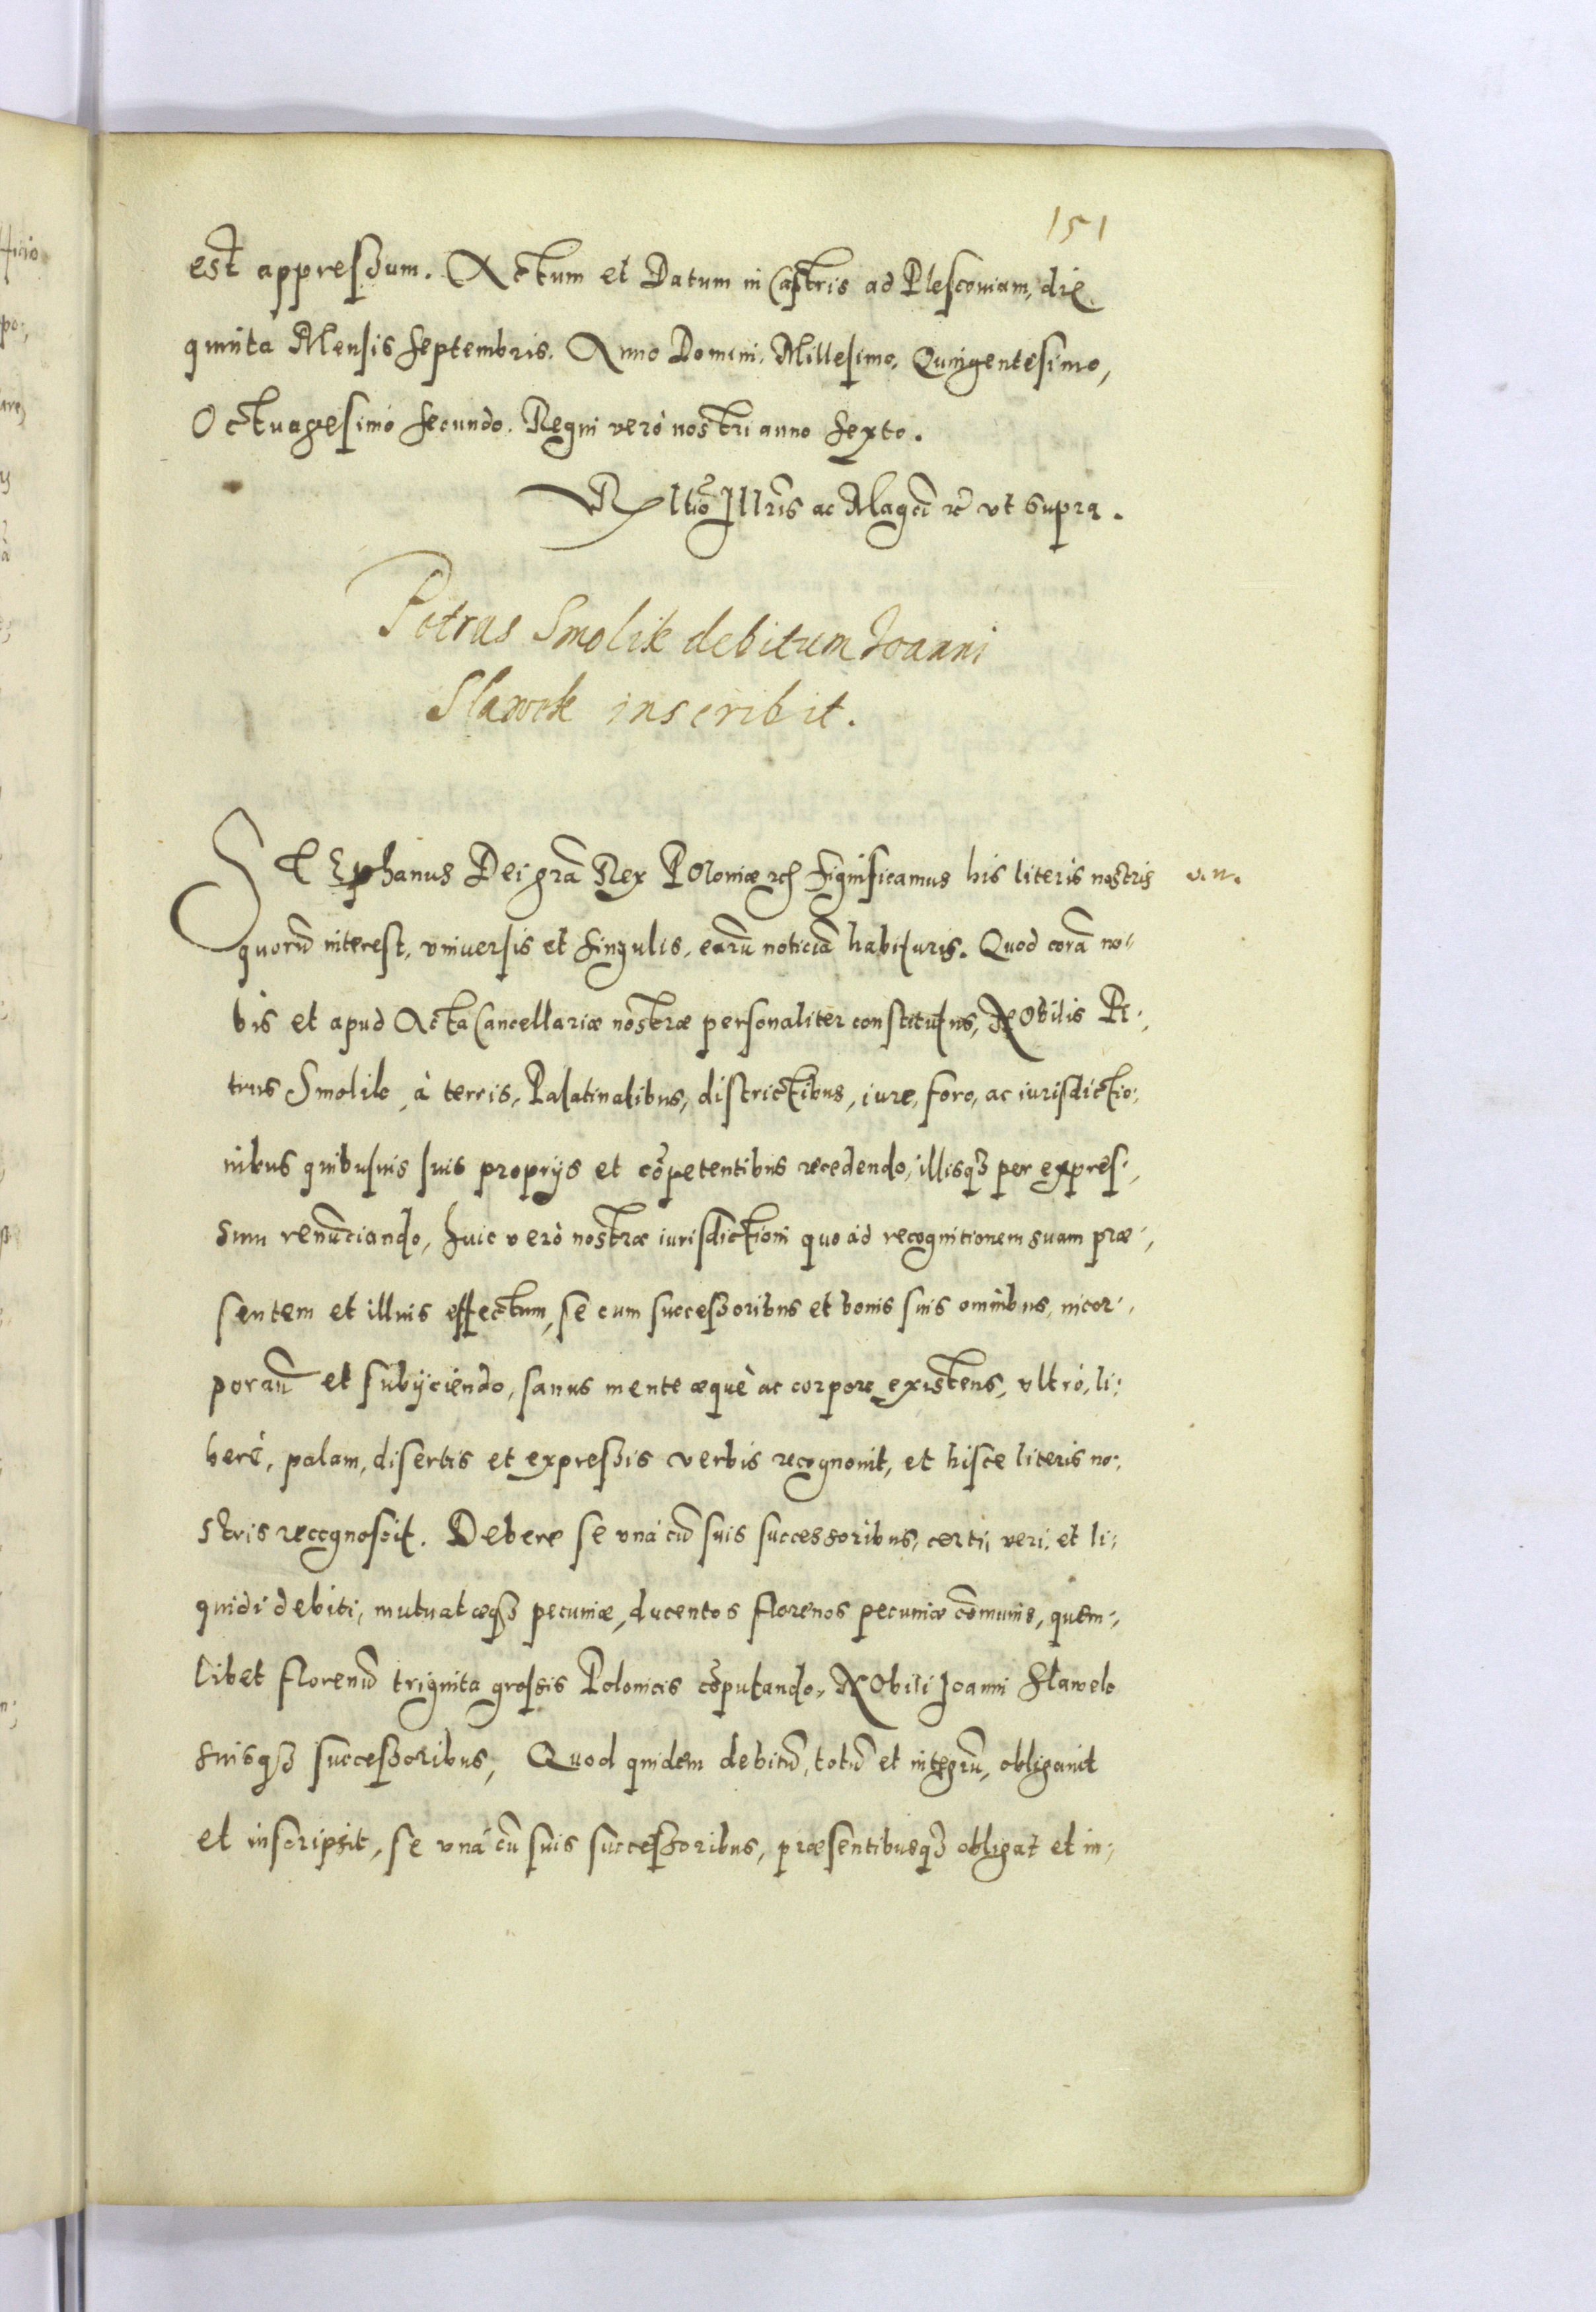 151
est appressum. Actum et Datum in Castris ad Plescoviam, die
quinta Mensis Septembris. Anno Domini. Millesimo. Quingentesimo,
Octuagesimo secundo. Regni verò nostri anno sexto.
Rltio Illris ac Magci rc vt supra.
Petrus Smolik debitum Joanni
Slawek inscribit.
STEphanus Dei gra Rex Poloniæ rc significamus his literis nostris
quoru interest, vniversis et singulis, earu noticia habituris. Quod cora no-
bis et apud Acta Cancellariæ nostræ personaliter constitutus, Nobilis Pe-
trus Smolik, à terris, Palatinatibus, districtibus, iure, foro, ac iurisdictio-
nibus quibusuis suis proprijs et copetentibus recedendo, illisq3 per expres-
sum renuciando, huic verò nostræ iurisdictioni quo ad recognitionem suam præ-
sentem et illius effectum, se cum successoribus et bonis suis omnibus, incor-
poran et subijciendo, sanus mente æquè ac corpore existens, vltrò, li-
berè, palam, disertis et expressis verbis recognouit, et hisce literis no-
stris recognoscit. Debere se vnà cu suis successoribus, certi, veri, et li-
quidi debiti, mutuatæq3 pecuniæ, ducentos florenos pecuniæ comunis, quem-
libet florenu triginta grossis Polonicis coputando, Nobili Joanni Slawek
suisq3 successoribus, Quod quidem debitu, totu et integru, obligauit
et inscripsit, se vnà cu suis successoribus, præsentibusq3 obligat et in-